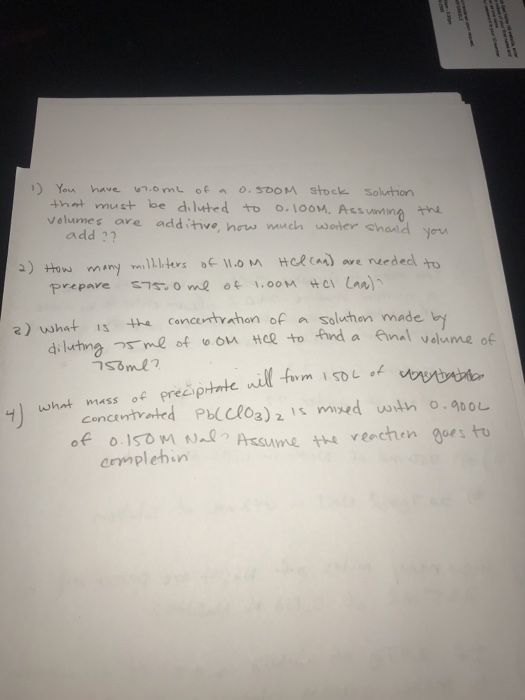 1) You have 67.0mL of a 0.500M stock solution
that must be diluted to 0.100M. Assuming the
volumes are additive, how much water should you
add ??
2) How many milliliters of 11.0 M HCl (aq) are needed to
prepare 575.0 ml of 1.00M HCl (aq)?
3) what is the concentration of a solution made by
diluting 75 ml of 6.0M HCl to find a final volume of
750ml?
4) what mass of precipitate will form 1.50L of
concentrated Pb(ClO3)2 is mixed with 0.900L
of 0.150M NaI? Assume the reaction goes to
completion